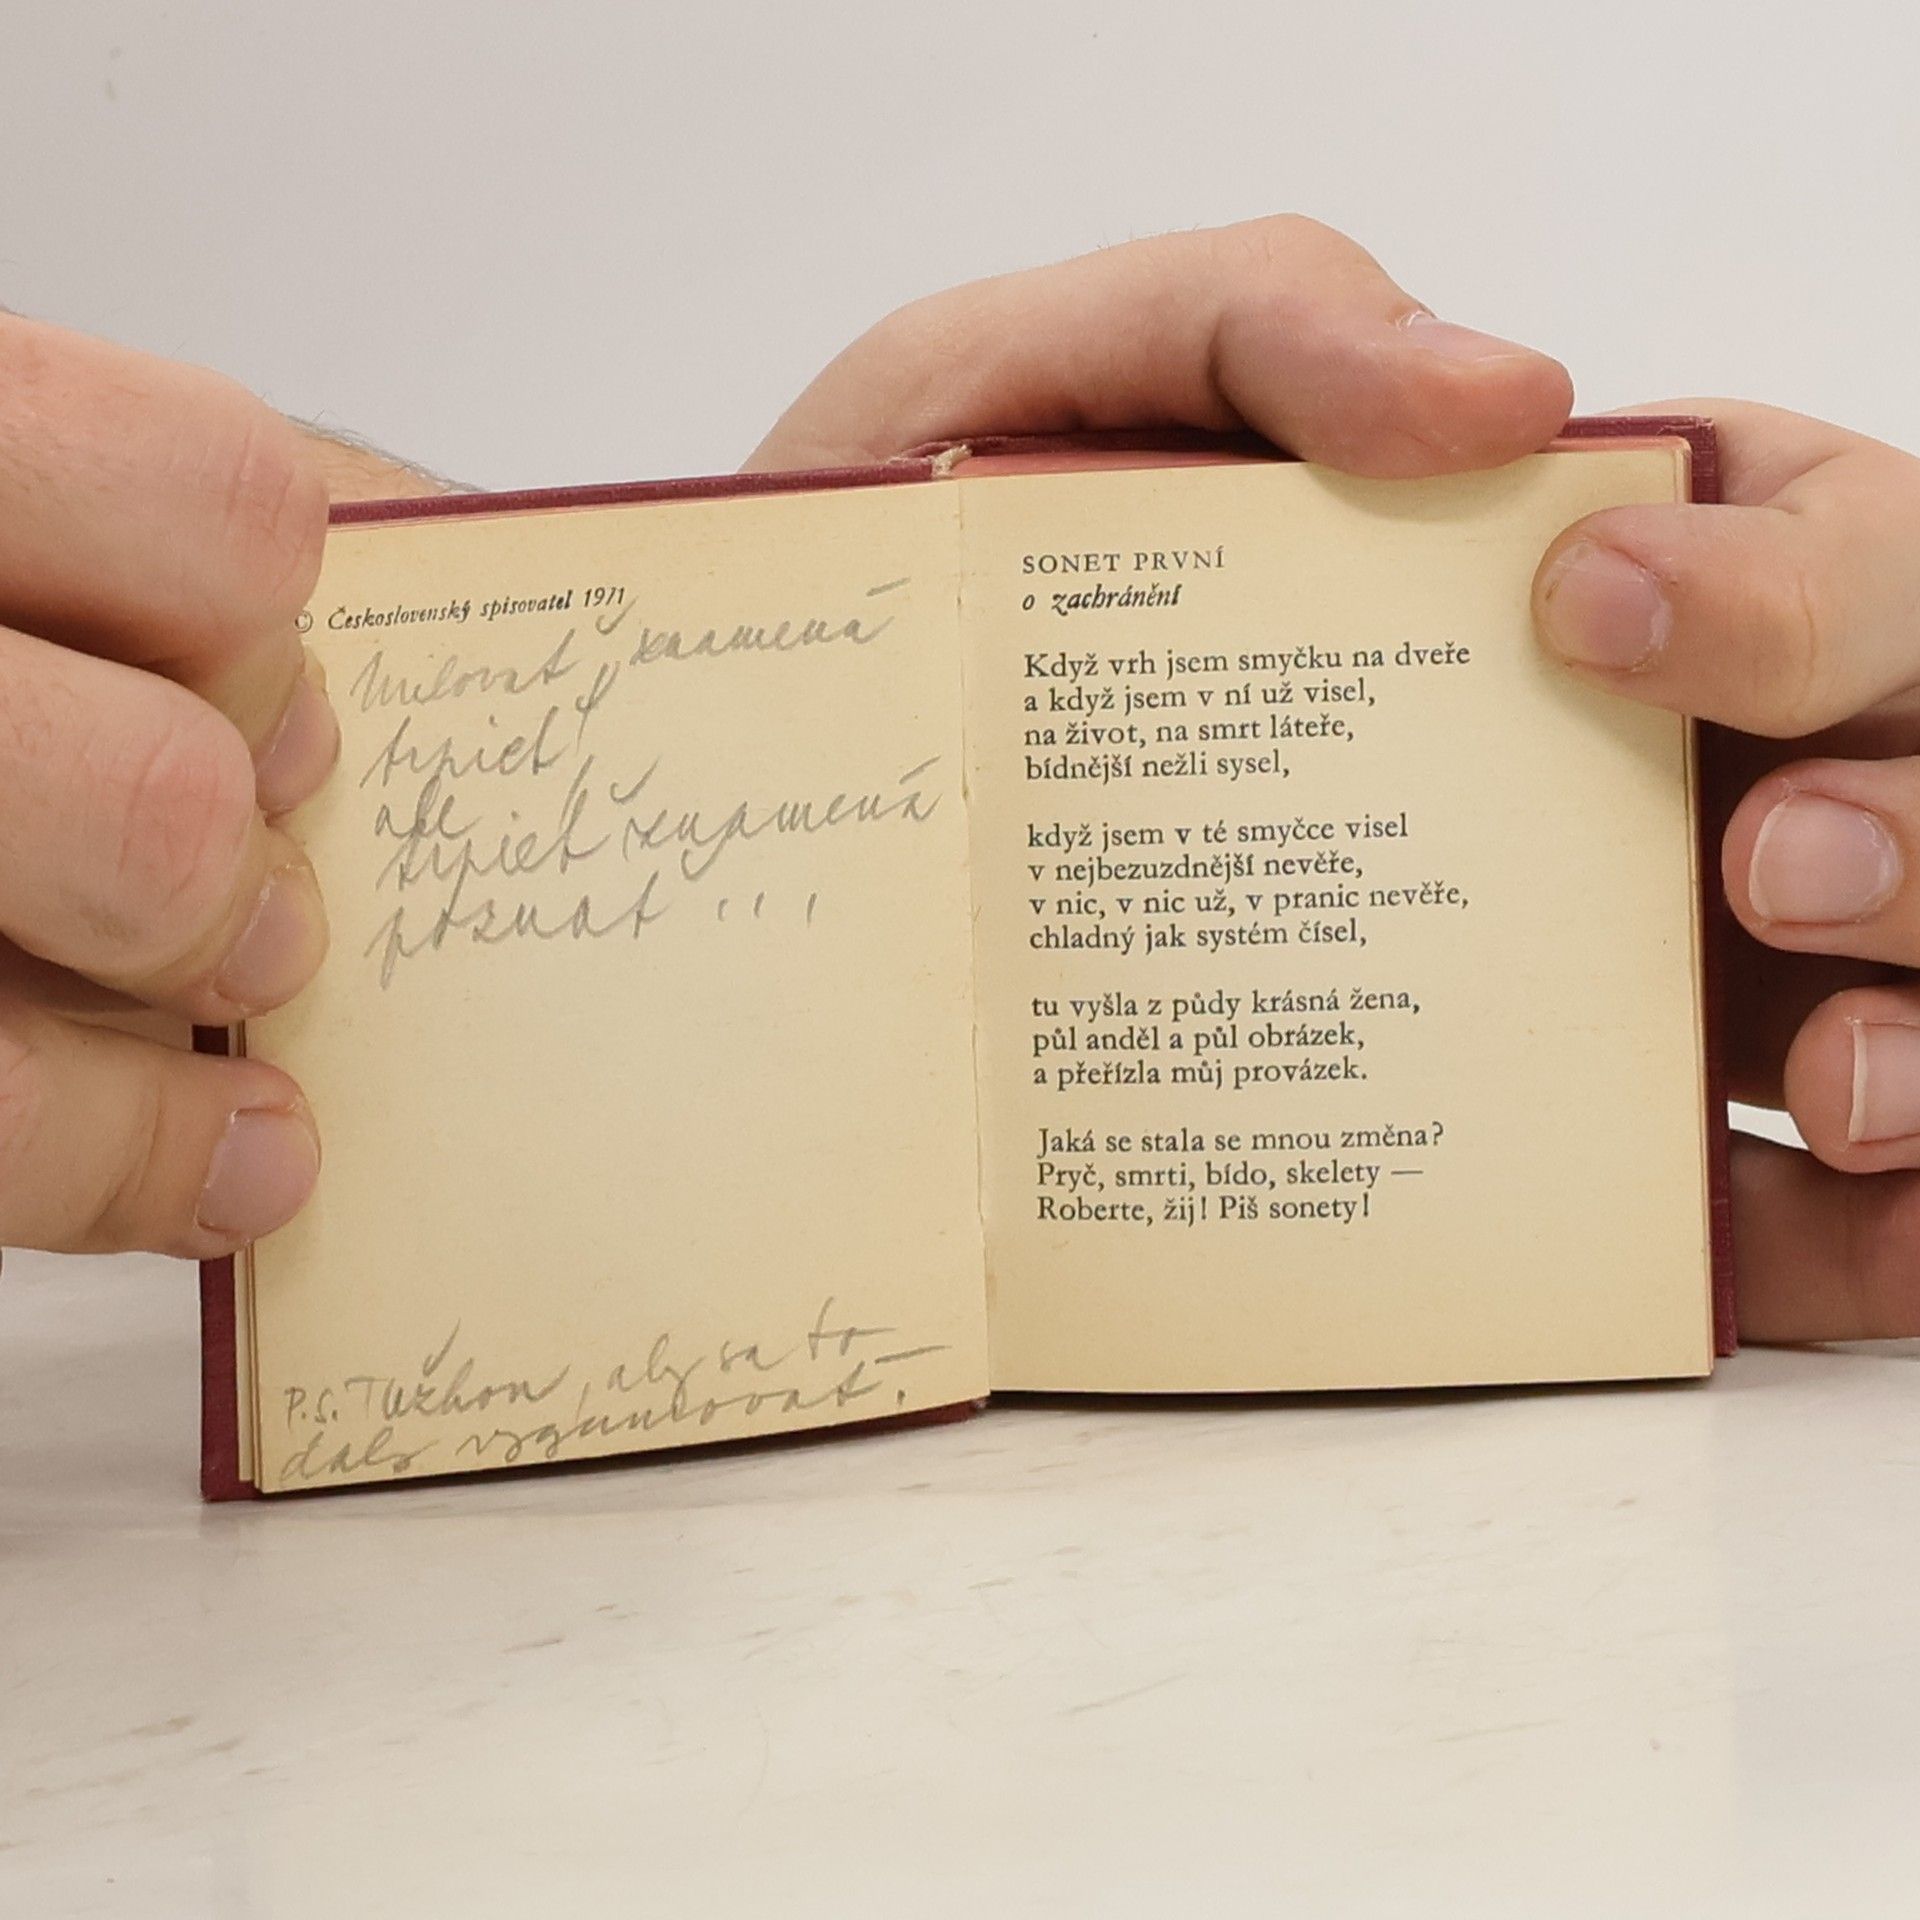 © Československý spisovatel 1971
Milovať znamená
trpieť,
ale
trpieť znamená
poznať ...
P.S. Túžbou, aby sa to
dalo vygumovať.
SONET PRVNÍ
o zachránění
Když vrh jsem smyčku na dveře
a když jsem v ní už visel,
na život, na smrt láteře,
bídnější nežli sysel,
když jsem v té smyčce visel
v nejbezuzdnější nevěře,
v nic, v nic už, v pranic nevěře,
chladný jak systém čísel,
tu vyšla z půdy krásná žena,
půl anděl a půl obrázek,
a přeřízla můj provázek.
Jaká se stala se mnou změna?
Pryč, smrti, bído, skelety —
Roberte, žij! Piš sonety!